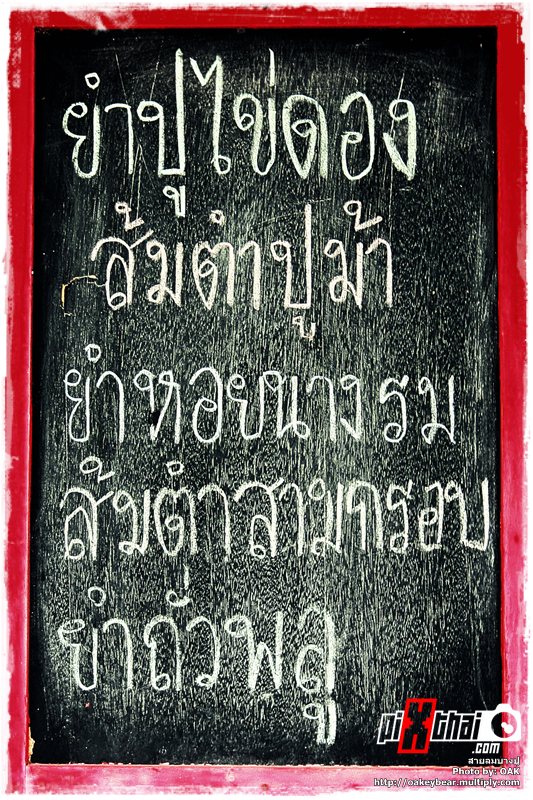 ยำปูไข่ดอง
ส้มตำปูม้า
ยำหอยนางรม
ส้มตำสามกรอบ
ยำถั่วพลู
piXthai
.com
สายลมบางปู
Photo by: OAK
http://oakeybear.multiply.com